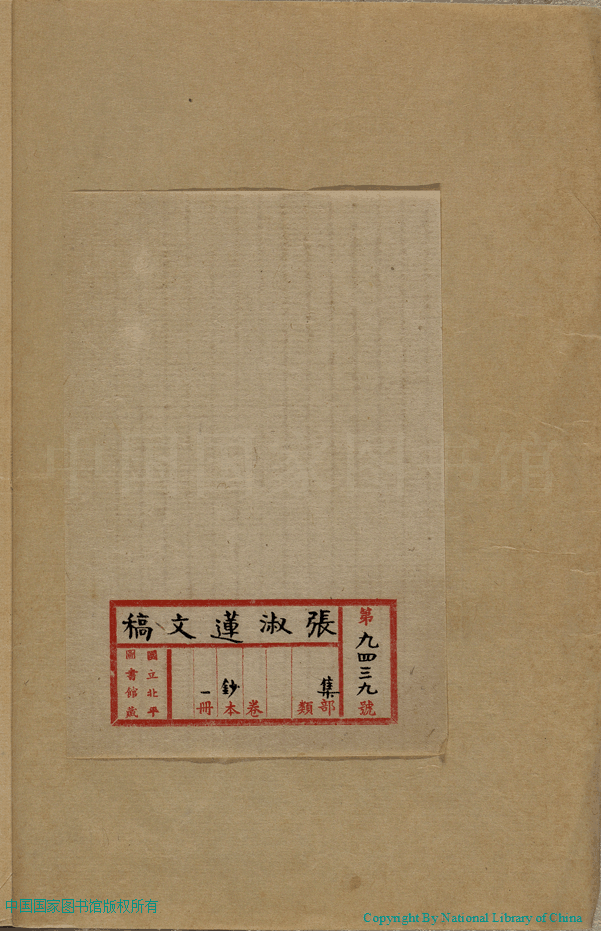 中国国家图书馆
第九四三九號
張淑蓮文稿
集部
類
卷
鈔本
一冊
國立北平
圖書館藏
中国国家图书馆版权所有
Copyright By National Library of China